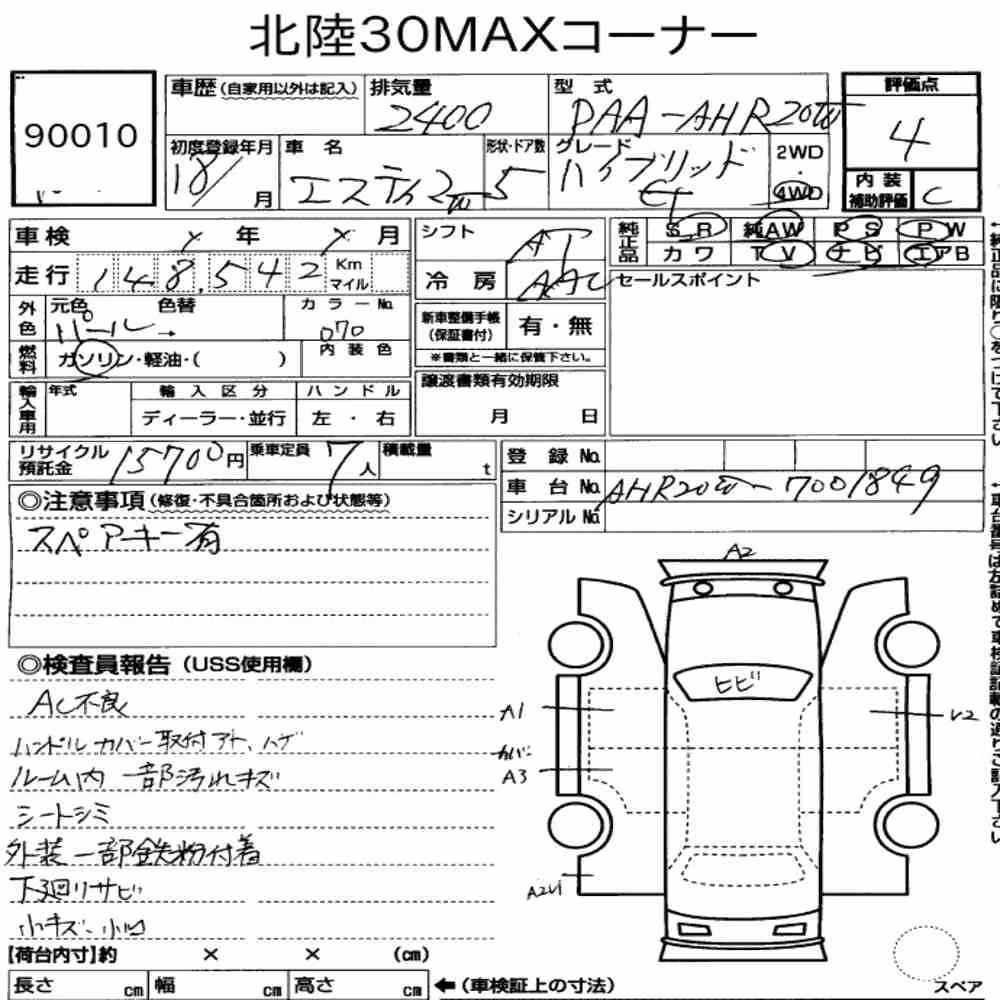 北陸30MAXコーナー
90010
車歴(自家用以外は記入)
排気量
2400
型 式
PAA-AHR20W
評価点
4
初度登録年月
18/ 月
車 名
エスティマ
形状・ドア数
5
グレード
ハイブリッド
2WD
・
4WD
内 装
補助評価
C
車検 年 月
シフト
AT
純正品
S R
純AW
P S
P W
カワ
T V
ナビ
エアB
走行 148,542 Km
マイル
冷 房
AAC
セールスポイント
外色
元色
色替
パール→
カラーNo.
070
新車整備手帳
(保証書付)
有・無
※書類と一緒に保管下さい。
燃料
ガソリン・軽油・( )
内 装 色
譲渡書類有効期限
月 日
輸入車用
年式
輸 入 区 分
ハ ン ド ル
ディーラー・並行
左 ・ 右
リサイクル
預託金
15700円
乗車定員
7人
積載量
t
登 録 No.
車 台 No.
AHR20W-7001849
シリアル No.
◎注意事項(修復・不具合箇所および状態等)
スペアキー有
◎検査員報告(USS使用欄)
AC不良
ハンドルカバー取付アト、ハゲ
ルーム内 一部汚れキズ
シートシミ
外装一部鉄粉付着
下廻りサビ
小キズ、小凹
A2
ヒビ
A1
カバー
A3
A2U1
U2
【荷台内寸】約 × × (cm)
長さ cm
幅 cm
高さ cm
←(車検証上の寸法)
スペア
↑純正品に限り○をつけて下さい
↑車台番号は左詰めで車検証記載の通りご記入下さい